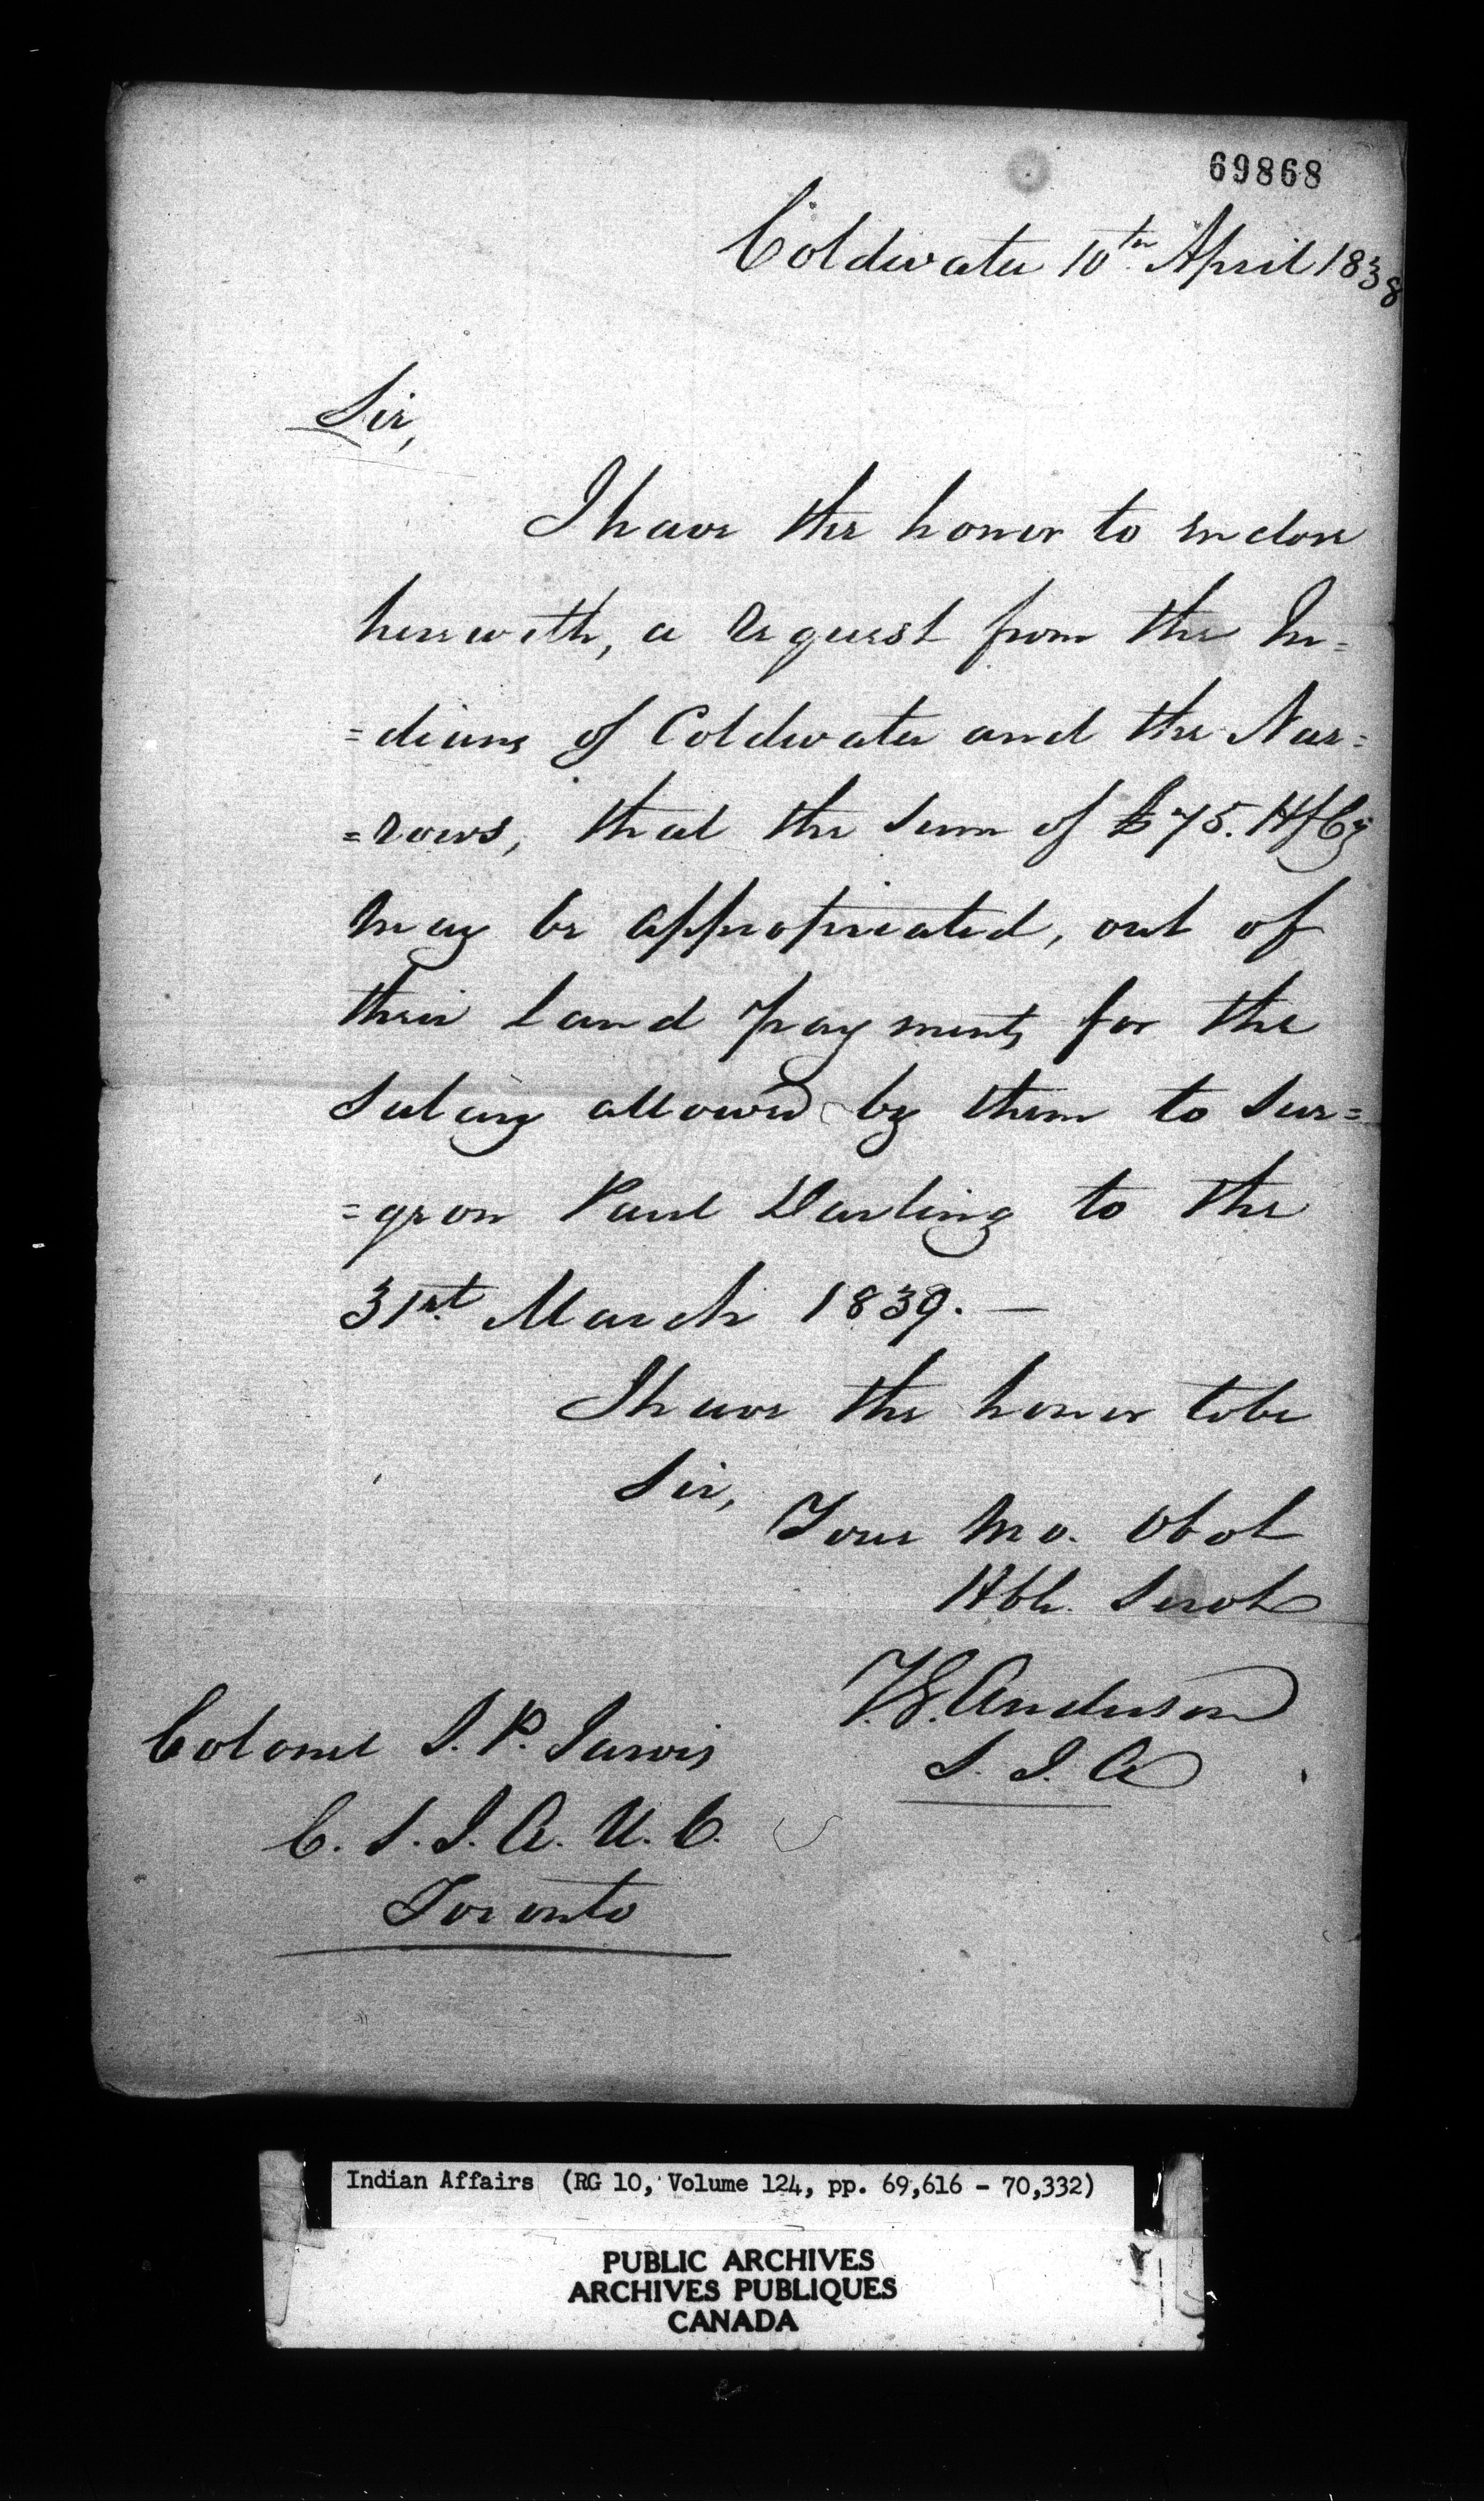 69868
Coldwater 10th April 1838
Sir,
I have the honor to enclose
herewith, a request from the In=
=dians of Coldwater and the Nar=
=rows, that the sum of £75. HfCy
may be appropriated, out of
their land payments for the
salary allowed by them to Sur=
=geon Paul Darling to the
31st March 1839. —
I have the honor to be
Sir,
Your Mo. Obdt
Hble. Servt
T.G. Anderson
S. I. A
Colonel S. P. Jarvis
C. S. I. A. U. C.
Toronto
Indian Affairs (RG 10, Volume 124, pp. 69,616 - 70,332)
PUBLIC ARCHIVES
ARCHIVES PUBLIQUES
CANADA